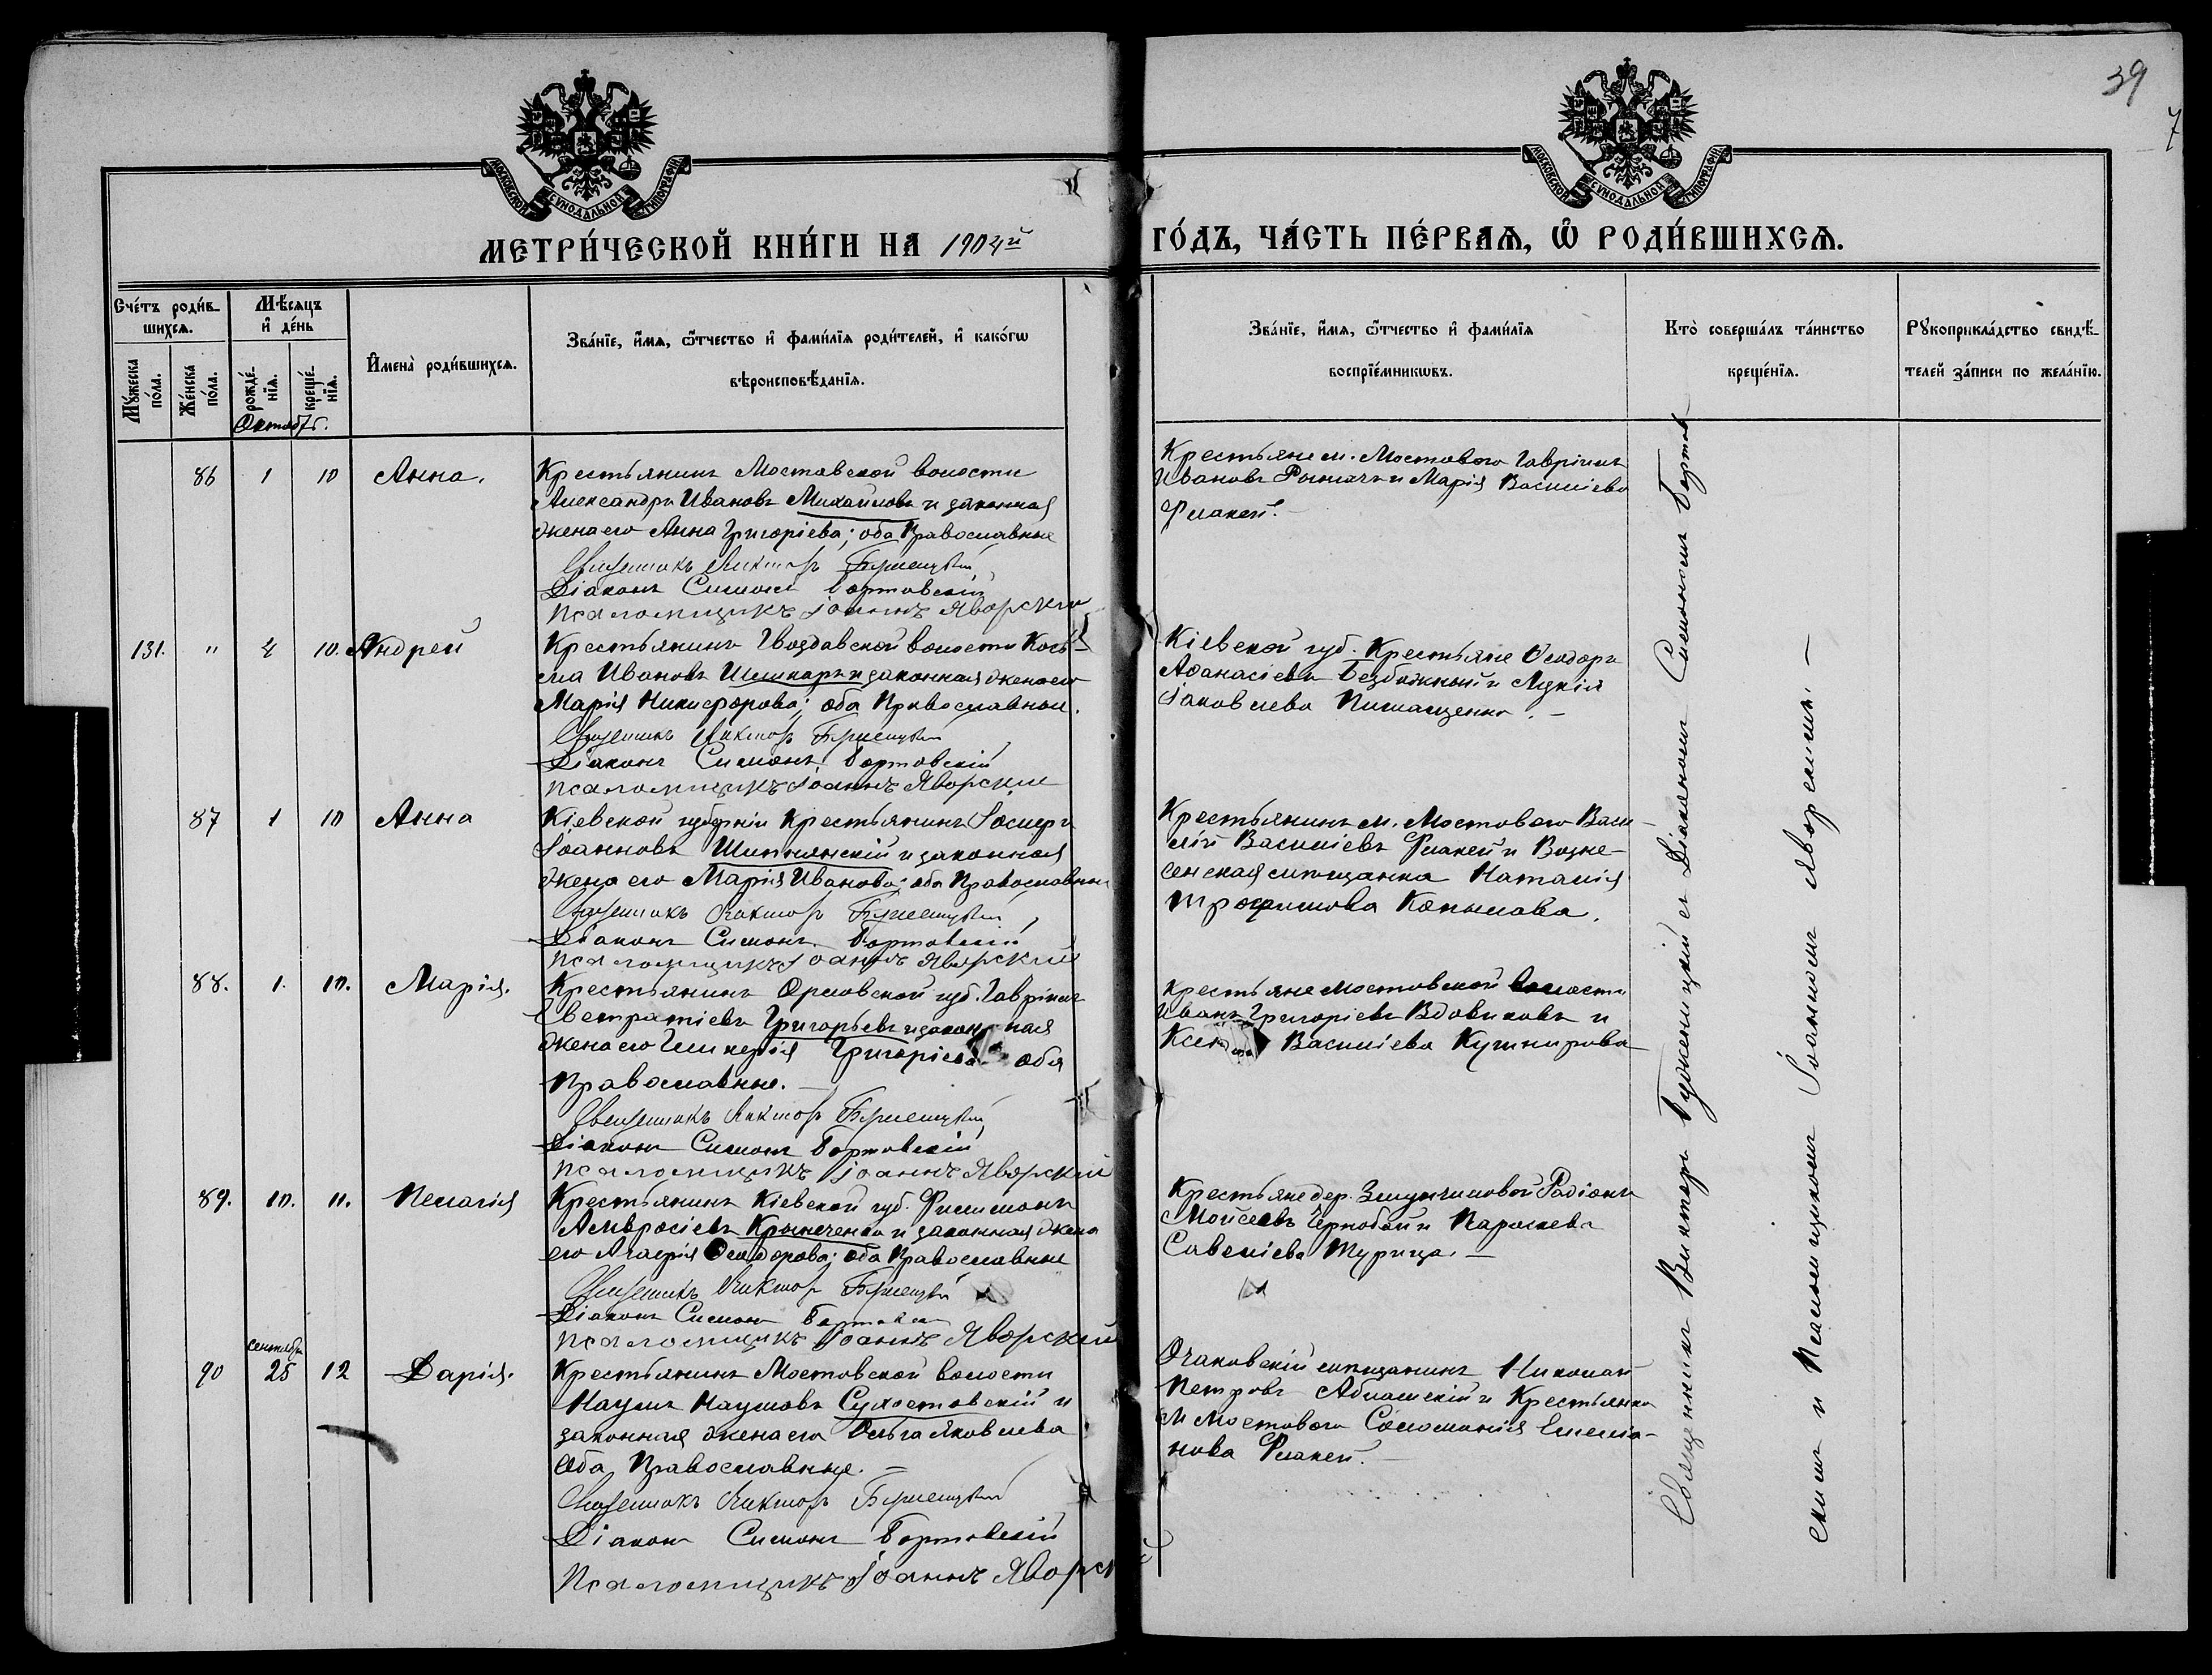 39
7
МОСКОВСКОЙ СѴНОДАЛЬНОЙ ТИПОГРАФІИ
МОСКОВСКОЙ СѴНОДАЛЬНОЙ ТИПОГРАФІИ
МЕТРИ́ЧЕСКОЙ КНИ́ГИ НА 1904й ГО́ДЪ, ЧА́СТЬ ПЕ́РВАѦ, Ѽ РОДИ́ВШИХСѦ.
Сче́тъ роди́вшихсѧ.
Мꙋ́жеска по́ла.
Же́нска по́ла.
Мѣ́сѧцъ и҆ де́нь
рожде́нїѧ.
креще́нїѧ.
И҆мена̀ роди́вшихсѧ.
Зва́нїе, и҆́мѧ, ѻ҆́тчество и҆ фами́лїѧ роди́телей, и҆ како́гѡ
вѣроисповѣ́данїѧ.
Зва́нїе, и҆́мѧ, ѻ҆́тчество и҆ фами́лїѧ
воспрїе́мникѡвъ.
Кто̀ соверша́лъ та́инство
креще́нїѧ.
Рꙋкоприкла́дство свидѣ́телей за́писи по жела́нїю.
Октяб.
86 1 10 Анна.
Крестьянинъ Мостовской волости
Александръ Ивановъ Михайловъ и законная
жена его Анна Григоріева; оба Православные
Священникъ Викторъ
Діаконъ Симонъ Бортовскій
Псаломщикъ Іоаннъ Яворскій
Крестьяне м. Мостового Гавріилъ
Ивановъ и Марія Василіева
Флакей.
131. " 4 10. Андрей
Крестьянинъ Гвоздавской волости Кось-
ма Ивановъ и законная жена его
Марія Никифорова; оба Православные.
Священникъ Викторъ
Діаконъ Симонъ Бортовскій
Псаломщикъ Іоаннъ Яворскій
Кіевской губ. Крестьяне Ѳеодоръ
Аѳанасіевъ Безбожный и Лукія
Іаковлева
87 1 10 Анна
Кіевской губерніи Крестьянинъ Іосифъ
Іоанновъ и законная
жена его Марія Иванова; оба Православные
Священникъ Викторъ
Діаконъ Симонъ Бортовскій
Псаломщикъ Іоаннъ Яворскій
Крестьянинъ м. Мостового Васи-
лій Василіевъ Флакей и Возне-
сенская мѣщанка Наталія
Трофимова Копылова.
88. 1. 10. Марія.
Крестьянинъ Орловской губ. Гавріилъ
Евстратіевъ Григорьевъ и законная
жена его Гликерія Григоріева оба
Православные.
Священникъ Викторъ
Діаконъ Симонъ Бортовскій
Псаломщикъ Іоаннъ Яворскій
Крестьяне Мостовской волости
Иванъ Григоріевъ Вдовиковъ и
Василіева Кушнирова
89. 10. 11. Пелагія
Крестьянинъ Кіевской губ. Филимонъ
Амвросіевъ и законная жена
его Агафія Ѳеодорова; оба Православные
Священникъ Викторъ
Діаконъ Симонъ Бортовскій
Псаломщикъ Іоаннъ Яворскій
Крестьяне дер. Родіонъ
Моисеевъ Чернобай и Параскева
Савеліева Турица.
90 сентября 25 12 Дарія.
Крестьянинъ Мостовской волости
Наумъ Наумовъ Сухостовскій и
законная жена его Ольга Яковлева
Оба Православные.
Священникъ Викторъ
Діаконъ Симонъ Бортовскій
Псаломщикъ Іоаннъ Яворск
Очаковскій мѣщанинъ Николай
Петровъ и Крестьянка
м Мостового Соломонія Емелія-
нова Флакей.
Священникъ Викторъ съ Діакономъ Симономъ Бортов-
скимъ и Псаломщикомъ Іоанномъ Яворскимъ.